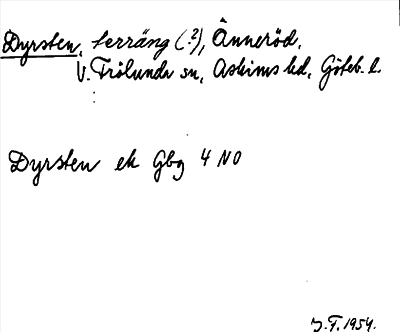 Dyrsten, terräng (?), Änneröd,
V. Frölunda sn, Askims hd, Göteb. l.
Dyrsten ek Gbg 4 NO
J.F. 1954.